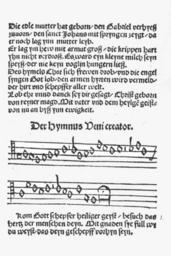 Die edle mutter hat geborn / den Gabriel verhyeß
zuuorn / den sanct Johans mit springen zeygt / da
er noch lag ym mutter leyb.
Er lag ym hew mit armut groß / die krippen hart
yhn nicht verdroß / Es ward eyn kleyne milch seyn
speyß / der nie keyn voglin hungern ließ.
Des hymels Chör sich frewen drob / und die engel
syngen Got lob / den armen hyrten wird vermeld
der hirt und schepffer aller welt.
Lob ehr und danck sey dir gesagt / Christ geborn
von reyner magd / Mit vater und dem heyligen geist
von nu an byß ynn ewigkeit.
Der hymnus Veni creator.
Kom Gott schepfer heiliger geyst / besuch das
hertz der menschen deyn / Mit gnaden sye füll wie
du weyst / das deyn geschepff vorhyn seyn.